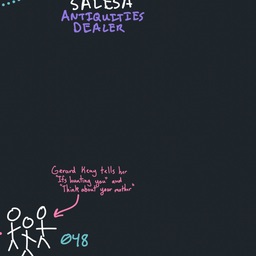 SALESA
ANTIQUITIES
DEALER
Gerard Keay tells her
"It's hunting you" and
"Think about your mother"
048